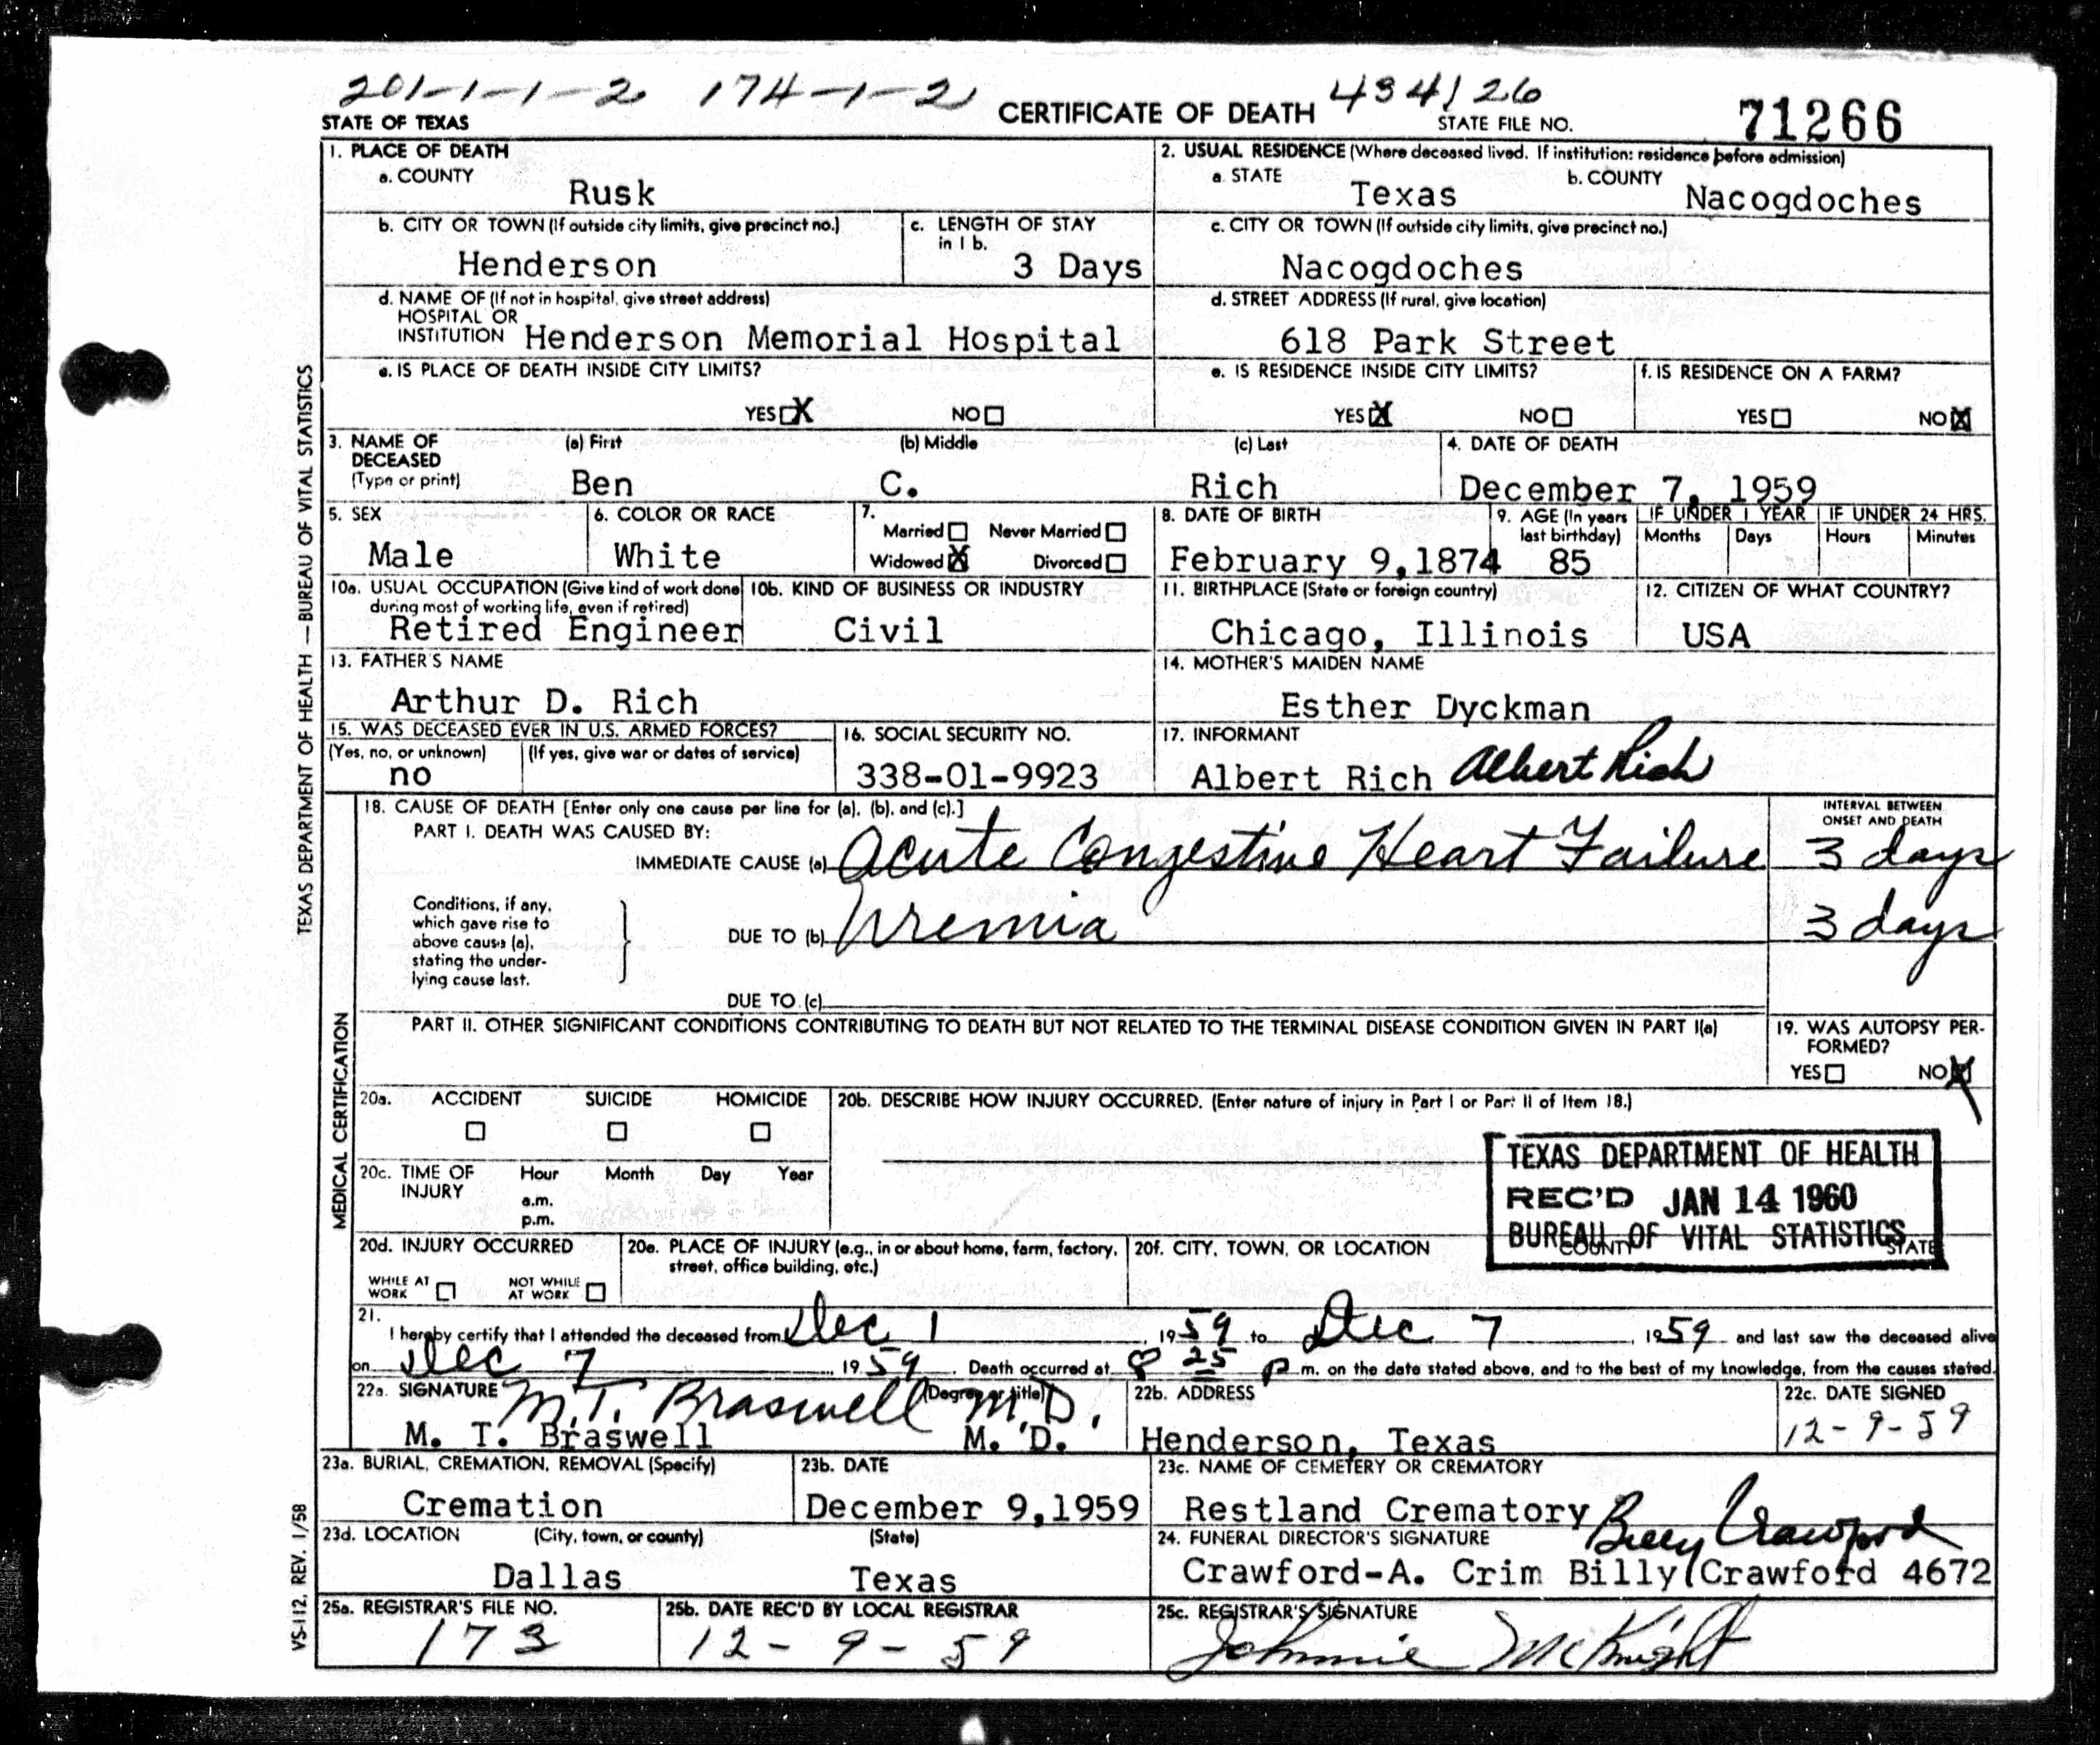 201-1-1-2 174-1-2 434126
STATE OF TEXAS CERTIFICATE OF DEATH STATE FILE NO. 71266
1. PLACE OF DEATH
a. COUNTY
Rusk
2. USUAL RESIDENCE (Where deceased lived. If institution: residence before admission)
a. STATE
Texas
b. COUNTY
Nacogdoches
b. CITY OR TOWN (If outside city limits, give precinct no.)
Henderson
c. LENGTH OF STAY
in 1 b.
3 Days
c. CITY OR TOWN (If outside city limits, give precinct no.)
Nacogdoches
d. NAME OF (If not in hospital, give street address)
HOSPITAL OR
INSTITUTION Henderson Memorial Hospital
d. STREET ADDRESS (If rural, give location)
618 Park Street
e. IS PLACE OF DEATH INSIDE CITY LIMITS?
YES X NO
e. IS RESIDENCE INSIDE CITY LIMITS?
YES X NO
f. IS RESIDENCE ON A FARM?
YES NO X
3. NAME OF
DECEASED
(Type or print)
(a) First (b) Middle (c) Last
Ben C. Rich
4. DATE OF DEATH
December 7, 1959
5. SEX
Male
6. COLOR OR RACE
White
7.
Married Never Married
Widowed X Divorced
8. DATE OF BIRTH
February 9,1874
9. AGE (In years
last birthday)
85
IF UNDER 1 YEAR
Months Days
IF UNDER 24 HRS.
Hours Minutes
10a. USUAL OCCUPATION (Give kind of work done
during most of working life, even if retired)
Retired Engineer
10b. KIND OF BUSINESS OR INDUSTRY
Civil
11. BIRTHPLACE (State or foreign country)
Chicago, Illinois
12. CITIZEN OF WHAT COUNTRY?
USA
13. FATHER'S NAME
Arthur D. Rich
14. MOTHER'S MAIDEN NAME
Esther Dyckman
15. WAS DECEASED EVER IN U.S. ARMED FORCES?
(Yes, no, or unknown) (If yes, give war or dates of service)
no
16. SOCIAL SECURITY NO.
338-01-9923
17. INFORMANT
Albert Rich Albert Rich
18. CAUSE OF DEATH [Enter only one cause per line for (a), (b), and (c).]
PART I. DEATH WAS CAUSED BY:
INTERVAL BETWEEN
ONSET AND DEATH
IMMEDIATE CAUSE (a) Acute Congestive Heart Failure 3 days
Conditions, if any,
which gave rise to
above cause (a),
stating the under-
lying cause last.
DUE TO (b) Uremia 3 days
DUE TO (c)
PART II. OTHER SIGNIFICANT CONDITIONS CONTRIBUTING TO DEATH BUT NOT RELATED TO THE TERMINAL DISEASE CONDITION GIVEN IN PART I(a)
19. WAS AUTOPSY PER-
FORMED?
YES NO X
20a. ACCIDENT SUICIDE HOMICIDE
20b. DESCRIBE HOW INJURY OCCURRED. (Enter nature of injury in Part I or Part II of Item 18.)
20c. TIME OF
INJURY
Hour Month Day Year
a.m.
p.m.
TEXAS DEPARTMENT OF HEALTH
REC'D JAN 14 1960
BUREAU OF VITAL STATISTICS
20d. INJURY OCCURRED
WHILE AT
WORK
NOT WHILE
AT WORK
20e. PLACE OF INJURY (e.g., in or about home, farm, factory,
street, office building, etc.)
20f. CITY, TOWN, OR LOCATION COUNTY STATE
21.
I hereby certify that I attended the deceased from Dec 1, 1959 to Dec 7, 1959 and last saw the deceased alive
on Dec 7, 1959. Death occurred at 8 25 p m. on the date stated above, and to the best of my knowledge, from the causes stated.
22a. SIGNATURE (Degree or title)
M.T. Braswell M.D.
M. T. Braswell M. D.
22b. ADDRESS
Henderson, Texas
22c. DATE SIGNED
12-9-59
23a. BURIAL, CREMATION, REMOVAL (Specify)
Cremation
23b. DATE
December 9,1959
23c. NAME OF CEMETERY OR CREMATORY
Restland Crematory
23d. LOCATION (City, town, or county) (State)
Dallas Texas
24. FUNERAL DIRECTOR'S SIGNATURE
Billy Crawford
Crawford-A. Crim Billy Crawford 4672
25a. REGISTRAR'S FILE NO.
173
25b. DATE REC'D BY LOCAL REGISTRAR
12-9-59
25c. REGISTRAR'S SIGNATURE
Johnnie McKnight
TEXAS DEPARTMENT OF HEALTH — BUREAU OF VITAL STATISTICS
MEDICAL CERTIFICATION
VS-112, REV. 1/58